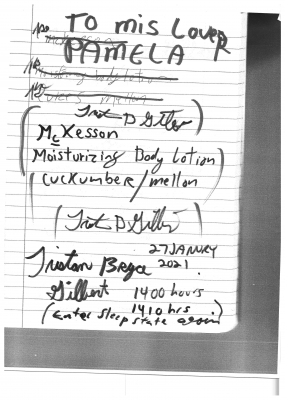 To mis LoveR
PAMELA
Body Lotion
mellon
McKesson
Moisturizing Body Lotion
(Cuckumber/mellon
27 JANURY
2021.
Tristan Bryce
Gilbert 1400 hours
1410 hrs
(Enter sleep state again)